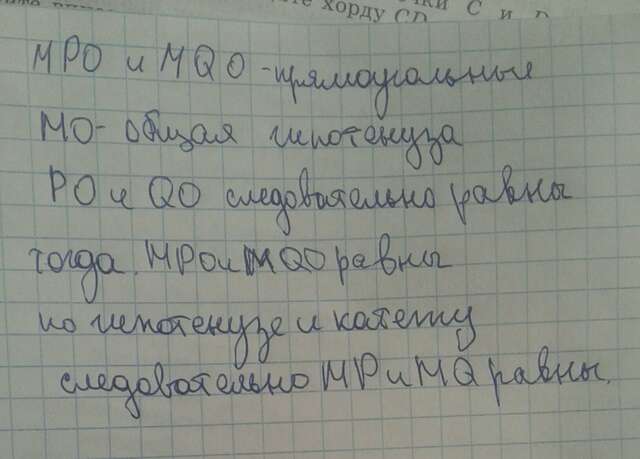 хорду CD
C и D
MPO и MQO - прямоугольные
MO - общая гипотенуза
PO и QO следовательно равны
тогда MPO и MQO равны
по гипотенузе и катету
следовательно MP и MQ равны.